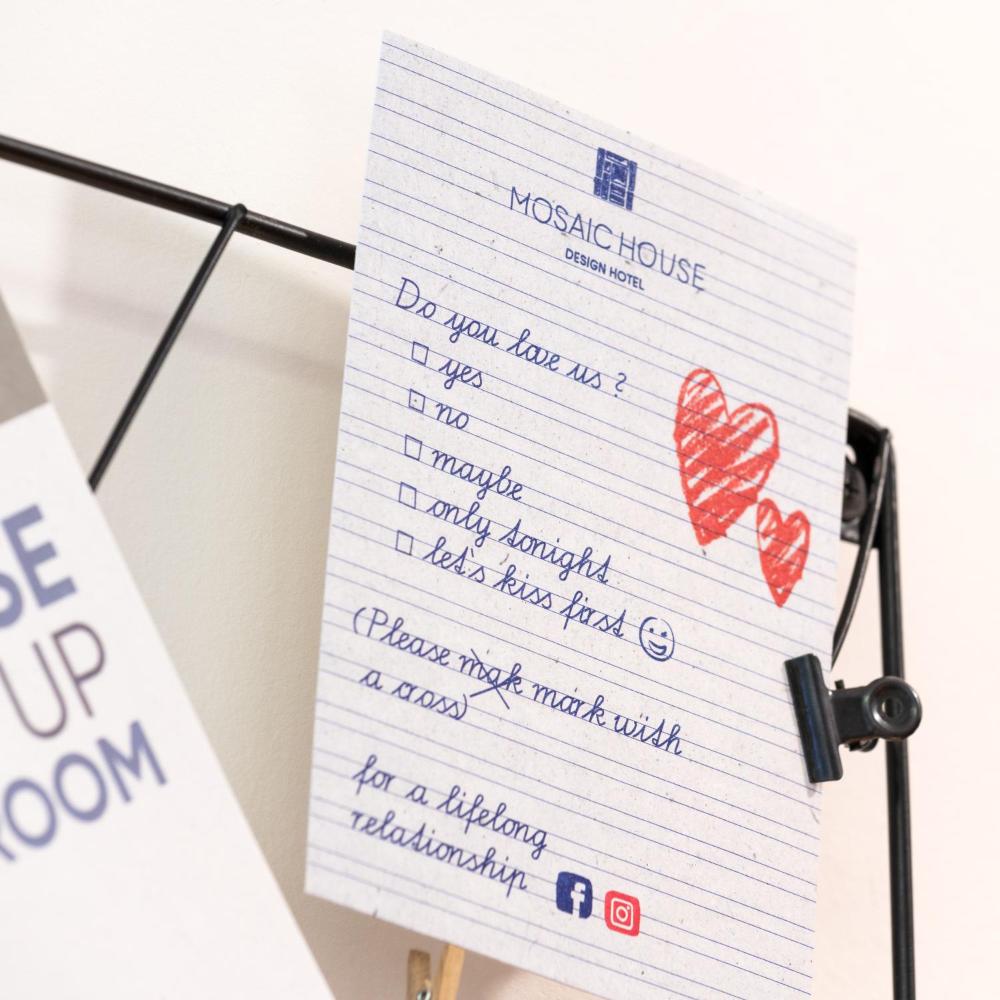 MOSAIC HOUSE
DESIGN HOTEL
Do you love us ?
yes
no
maybe
only tonight
let's kiss first
(Please mak mark with
a cross)
for a lifelong
relationship
SE
UP
ROOM